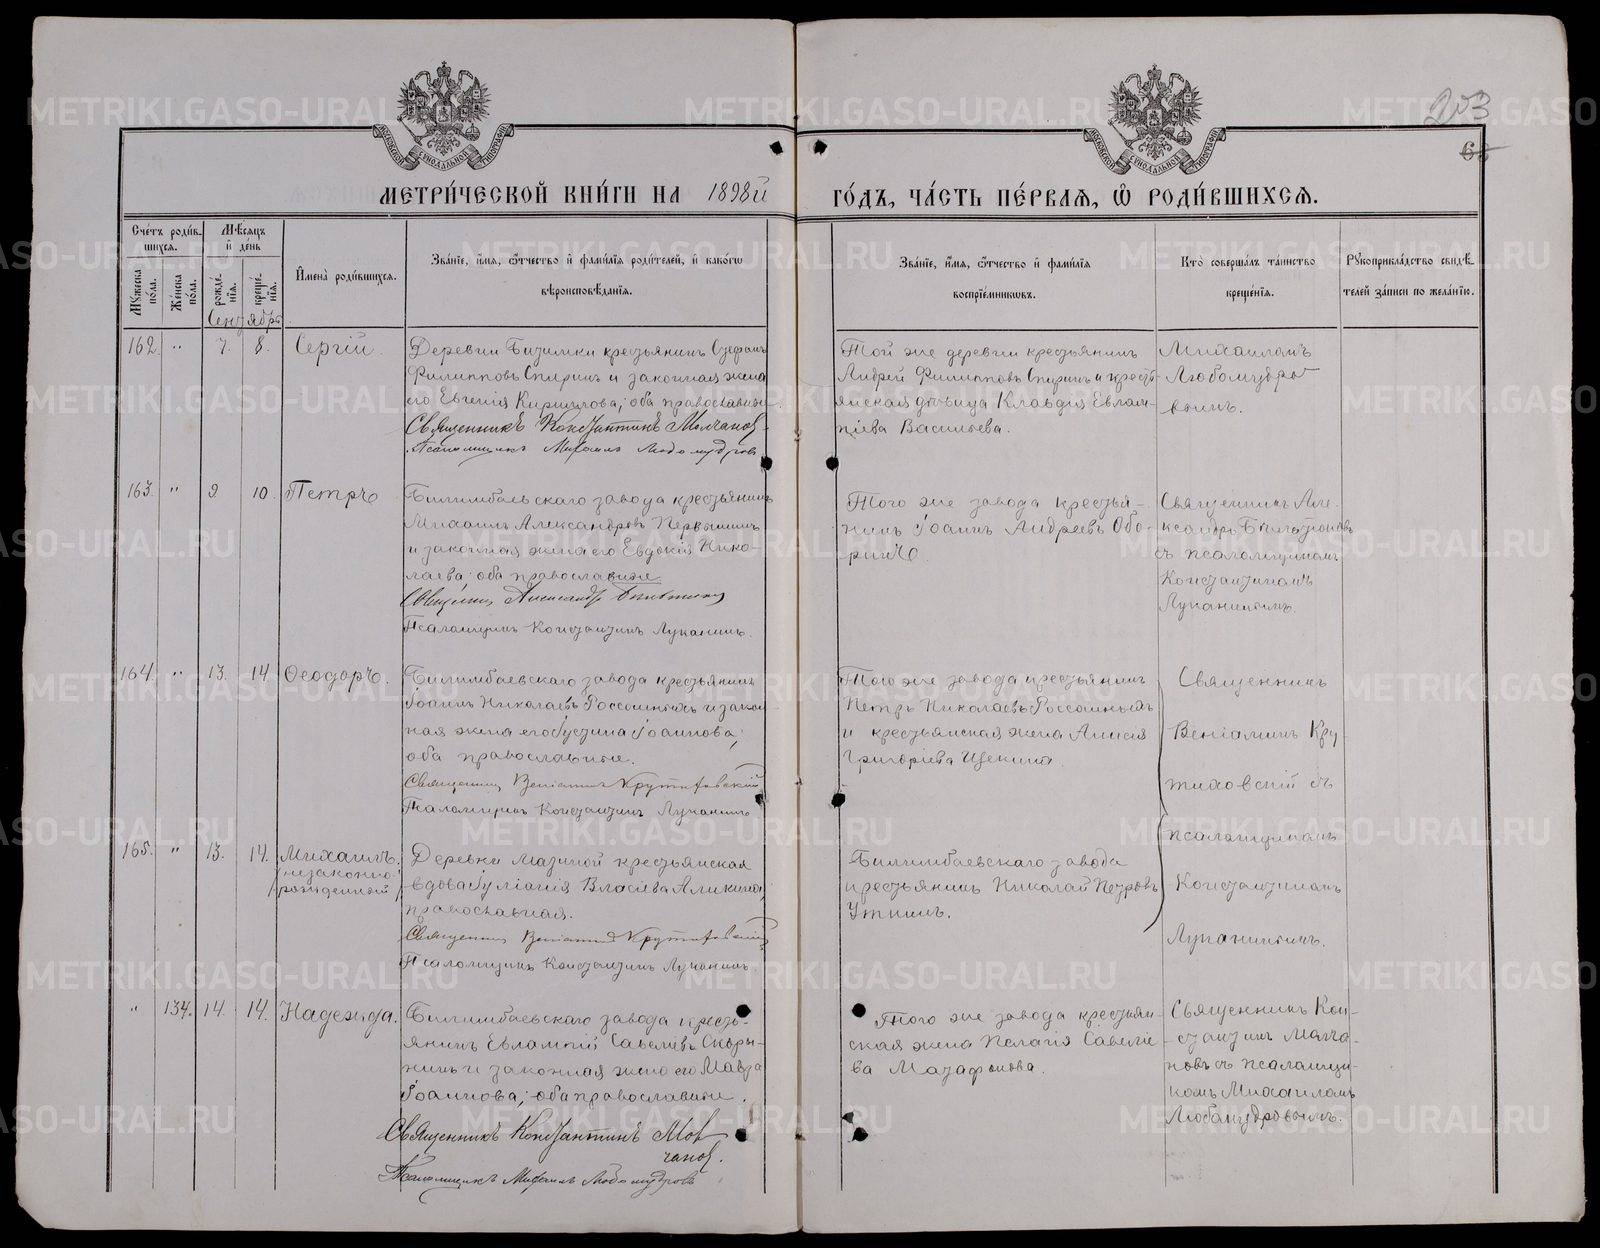 203
6
МЕТРИ́ЧЕСКОЙ КНИ́ГИ НА 1898й ГО́ДЪ, ЧА́СТЬ ПЕ́РВАѦ, Ѽ РОДИ́ВШИХСѦ.
МОСКОВСКОЙ СУНОДАЛЬНОЙ ТИПОГРАФІИ
МОСКОВСКОЙ СУНОДАЛЬНОЙ ТИПОГРАФІИ
Сче́тъ роди́в-
шихсѧ.
Мꙋ́жеска по́ла.
Же́нска по́ла.
Мѣ́сѧцъ
и҆ де́нь
рожде́-
нїѧ.
креще́-
нїѧ.
Сентябрь
И҆мена̀ роди́вшихсѧ.
Зва́нїе, и҆́мѧ, ѻ҆́тчество и҆ фами́лїѧ роди́телей, и҆ како́гѡ
вѣроисповѣ́данїѧ.
Зва́нїе, и҆́мѧ, ѻ҆́тчество и҆ фами́лїѧ
воспрїе́мникѡвъ.
Кто̀ соверша́лъ та́инство
креще́нїѧ.
Рꙋкоприкла́дство свидѣ́-
телей за́писи по жела́нїю.
162. " 7. 8. Сергій.
Деревни Битимки крестьянинъ
Филипповъ Спиринъ и законная жена
его Евгенія Кириллова; оба православные.
Священникъ Константинъ Молчановъ
Псаломщикъ Михаилъ Любомудровъ
Той же деревни крестьянинъ
Андрей Филипповъ Спиринъ и кресть-
янская дѣвица Клавдія Евлам-
піева Васильева.
Михаиломъ
Любомудро-
вымъ.
163. " 9 10. Петръ
Билимбаевскаго завода крестьянинъ
Михаилъ Александровъ Первышинъ
и законная жена его Евдокія Нико-
лаева; оба православные
Священникъ Александръ
Псаломщикъ Константинъ Луканинъ.
Того же завода крестья-
нинъ Іоаннъ Андреевъ Обо-
ринъ.
Священникъ Але-
ксандръ
съ псаломщикомъ
Константиномъ
Луканинымъ.
164. " 13. 14 Ѳеодоръ.
Билимбаевскаго завода крестьянинъ
Іоаннъ Николаевъ Россомныхъ и закон-
ная жена его Іустина Іоаннова;
оба православные.
Священникъ Веніаминъ Крутиховскій
Псаломщикъ Константинъ Луканинъ
Того же завода крестьянинъ
Петръ Николаевъ Россомныхъ
и крестьянская жена Анисія
Григоріева Щекина.
Священникъ
Веніаминъ Кру-
тиховскій съ
псаломщикомъ
Константиномъ
Луканинымъ.
165. " 13. 14. Михаилъ.
(незаконно-
рожденный)
Деревни Мазиной крестьянская
вдова Іуліанія Власіева Аликина,
православная.
Священникъ Веніаминъ Крутиховскій
Псаломщикъ Константинъ Луканинъ.
Билимбаевскаго завода
крестьянинъ Николай Петровъ
Уткинъ.
" 134. 14. 14. Надежда.
Билимбаевскаго завода кресть-
янинъ Евлампій Савеліевъ Скоры-
нинъ и законная жена его Мавра
Іоаннова; оба православные.
Священникъ Константинъ Мол-
чановъ.
Псаломщикъ Михаилъ Любомудровъ
Того же завода крестьян-
ская жена Пелагія Савеліе-
ва Мазафонова.
Священникъ Кон-
стантинъ Молча-
новъ съ псаломщи-
комъ Михаиломъ
Любомудровымъ.